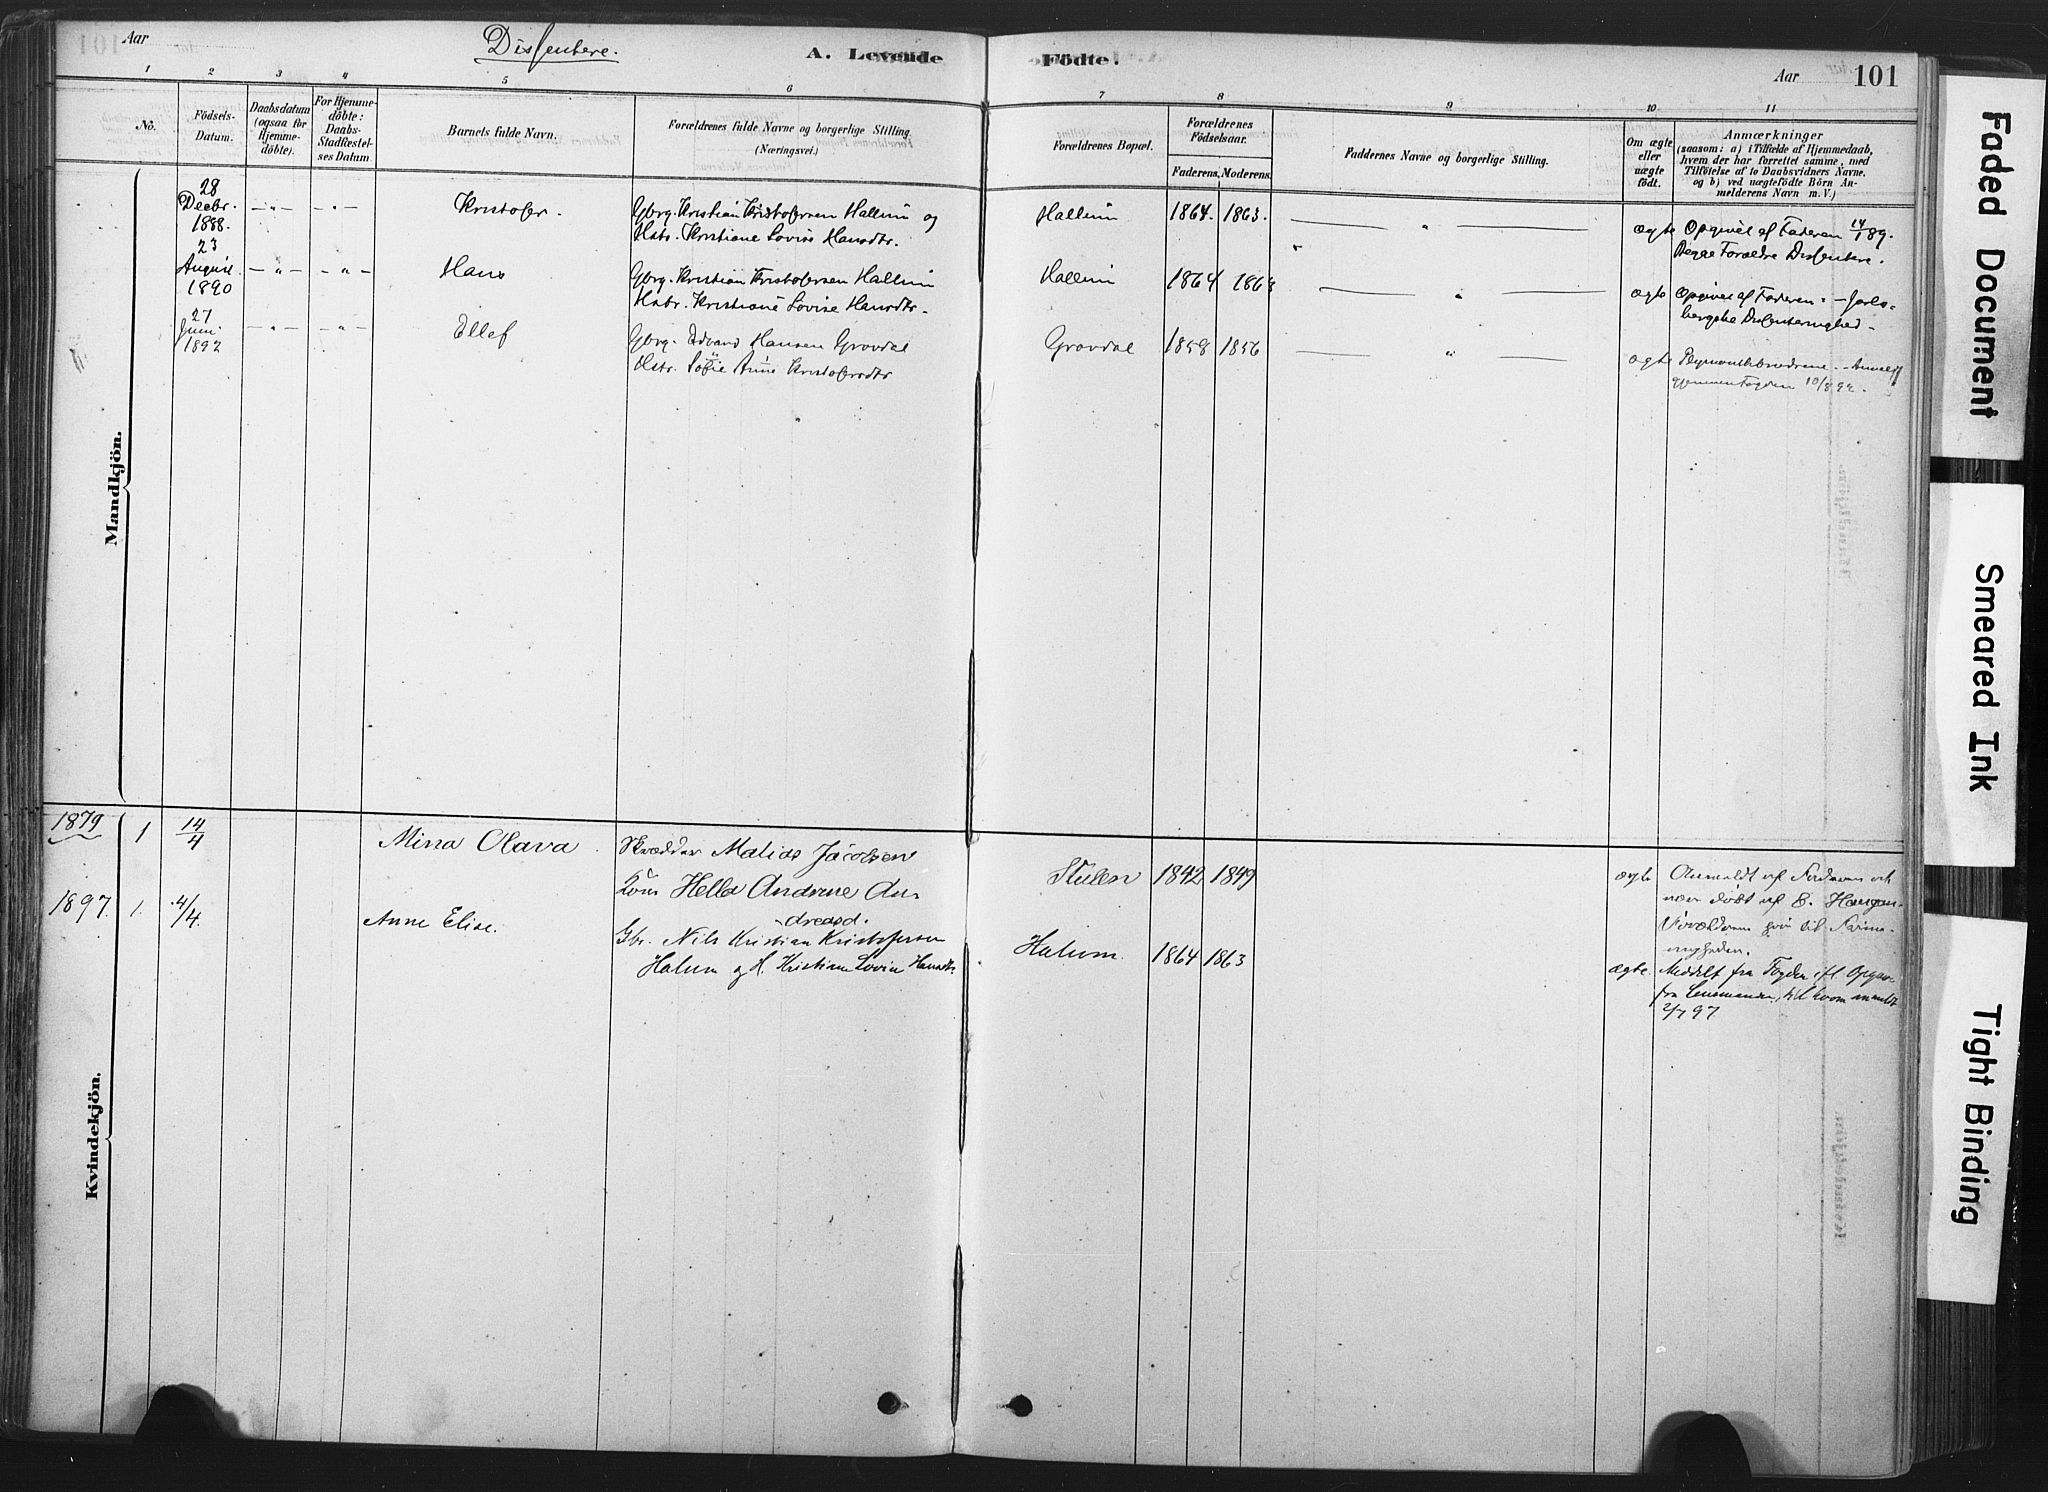 Aar
Dissentere.
A. Levende
Födte.
Aar
101
1 2 3 4 5 6 7 8 9 10 11
No.
Födsels-
Datum.
Daabsdatum
(ogsaa for
Hjemme-
döbte).
For Hjemme-
döbte:
Daabs-
Stadfæstel-
ses Datum.
Barnets fulde Navn.
Forældrenes fulde Navne og borgerlige Stilling.
(Næringsvei.)
Forældrenes Bopæl.
Forældrenes
Födselsaar.
Faderens. Moderens.
Faddernes Navne og borgerlige Stilling.
Om ægte
eller
uægte
födt.
Anmærkninger
(saasom: a) i Tilfælde af Hjemmedaab,
hvem der har forrettet samme, med
Tilföielse af to Daabsvidners Navne,
og b) ved uægtefödte Börn An-
melderens Navn m. V.)
Mandkjön.
28
Decbr.
1888.
— " — — " —
Kristofer.
Gbrg. Kristian Kristofersen Hallum og
Hstr. Kristiane Lovise Hansdtr.
Hallum 1864. 1863. — " —
ægte Opgivet af Faderen 14/1 89.
Begge Forældre Dissentere.
23
August
1890
— " — — " —
Hans
Gbrg. Kristian Kristofersen Hallum
Hstr. Kristiane Lovise Hansdtr.
Hallum 1864 1863 — " —
ægte Opgivet af Faderen. - Jarls-
bergske Dissentermenighed
27
Juni
1892
— " — — " —
Ellef
Gbrg. Edvard Hansen Grovdal
Hstr. Sofie Anne Kristofersdtr
Grovdal 1858 1856 — " —
ægte Plymouthbrødrene. - Anmeldt
gjennem Fogden 10/8 92.
1879 1 14/4
Mina Olava
Skrædder Matias Jacobsen
Kone Hella Andrine An-
dreasd.
Stulen 1842 1849
ægte Anmeldt af Faderen och
være døbt af E. Haugan-
Forældrene hører til Frime-
nigheden.
1897. 1. 4/4
Anne Elise.
Gbr. Nils Kristian Kristofersen
Halum og H. Kristiane Lovise Hansdtr
Halum. 1864 1863
ægte. Meddelt fra Fogden ifl. Opgave
fra Lensmanden, til hvem anmeldt
2/7 97.
Kvindekjön.
Faded Document
Smeared Ink
Tight Binding